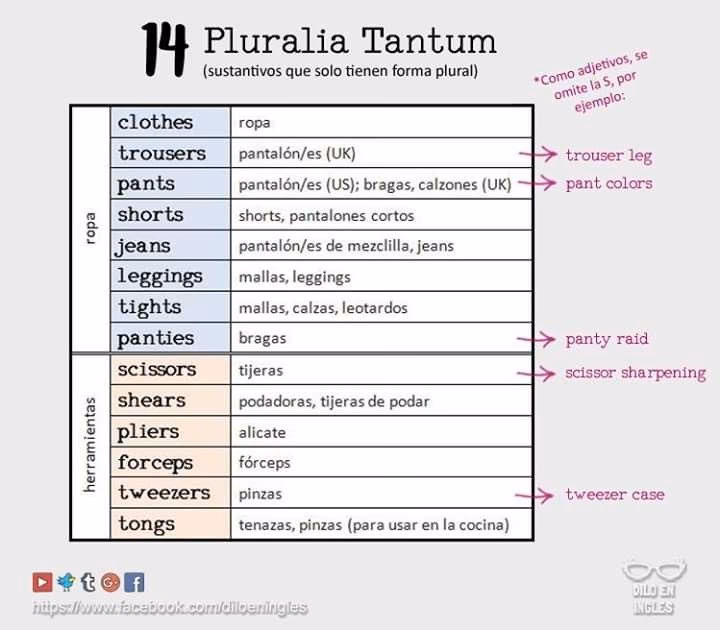 14 Pluralia Tantum
(sustantivos que solo tienen forma plural)
*Como adjetivos, se
omite la S, por
ejemplo:
ropa
clothes ropa
trousers pantalón/es (UK) trouser leg
pants pantalón/es (US); bragas, calzones (UK) pant colors
shorts shorts, pantalones cortos
jeans pantalón/es de mezclilla, jeans
leggings mallas, leggings
tights mallas, calzas, leotardos
panties bragas panty raid
herramientas
scissors tijeras scissor sharpening
shears podadoras, tijeras de podar
pliers alicate
forceps fórceps
tweezers pinzas tweezer case
tongs tenazas, pinzas (para usar en la cocina)
https://www.facebook.com/diloeningles
DILO EN
INGLES